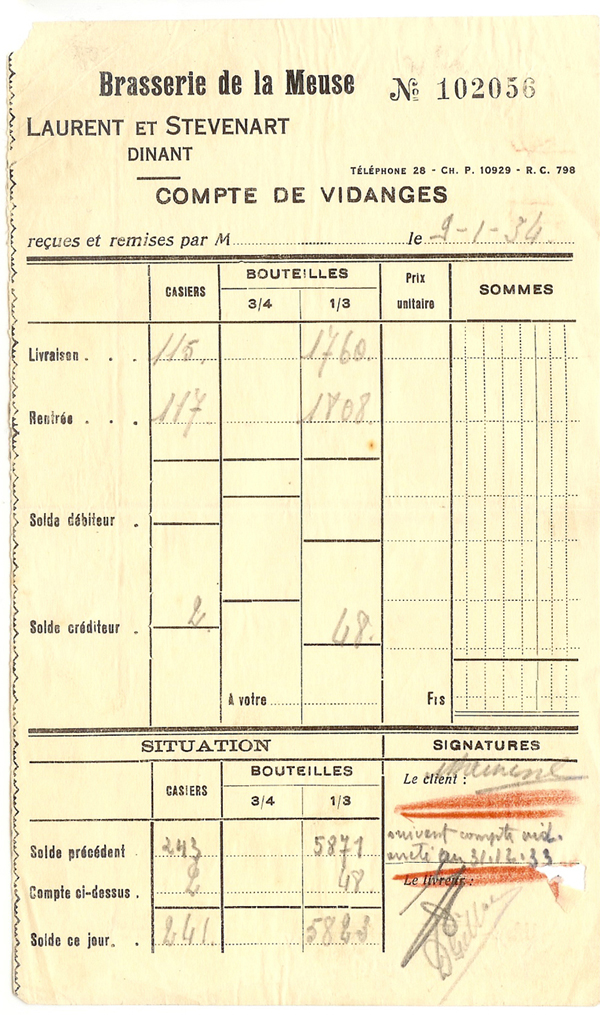 Brasserie de la Meuse № 102056
LAURENT ET STEVENART
DINANT
TÉLÉPHONE 28 - CH. P. 10929 - R. C. 798
COMPTE DE VIDANGES
reçues et remises par M le 2-1-34
CASIERS BOUTEILLES Prix unitaire SOMMES
3/4 1/3
Livraison . . . 115. 1760.
Rentrée . . . 117 1808.
Solde débiteur .
Solde créditeur . 2. 48.
A votre Frs
SITUATION SIGNATURES
CASIERS BOUTEILLES Le client :
3/4 1/3
suivant compte vid.
Solde précédent 243 5871 arrêté au 31.12.33
Compte ci-dessus . 2 48 Le livreur :
Solde ce jour. . 241. 5823